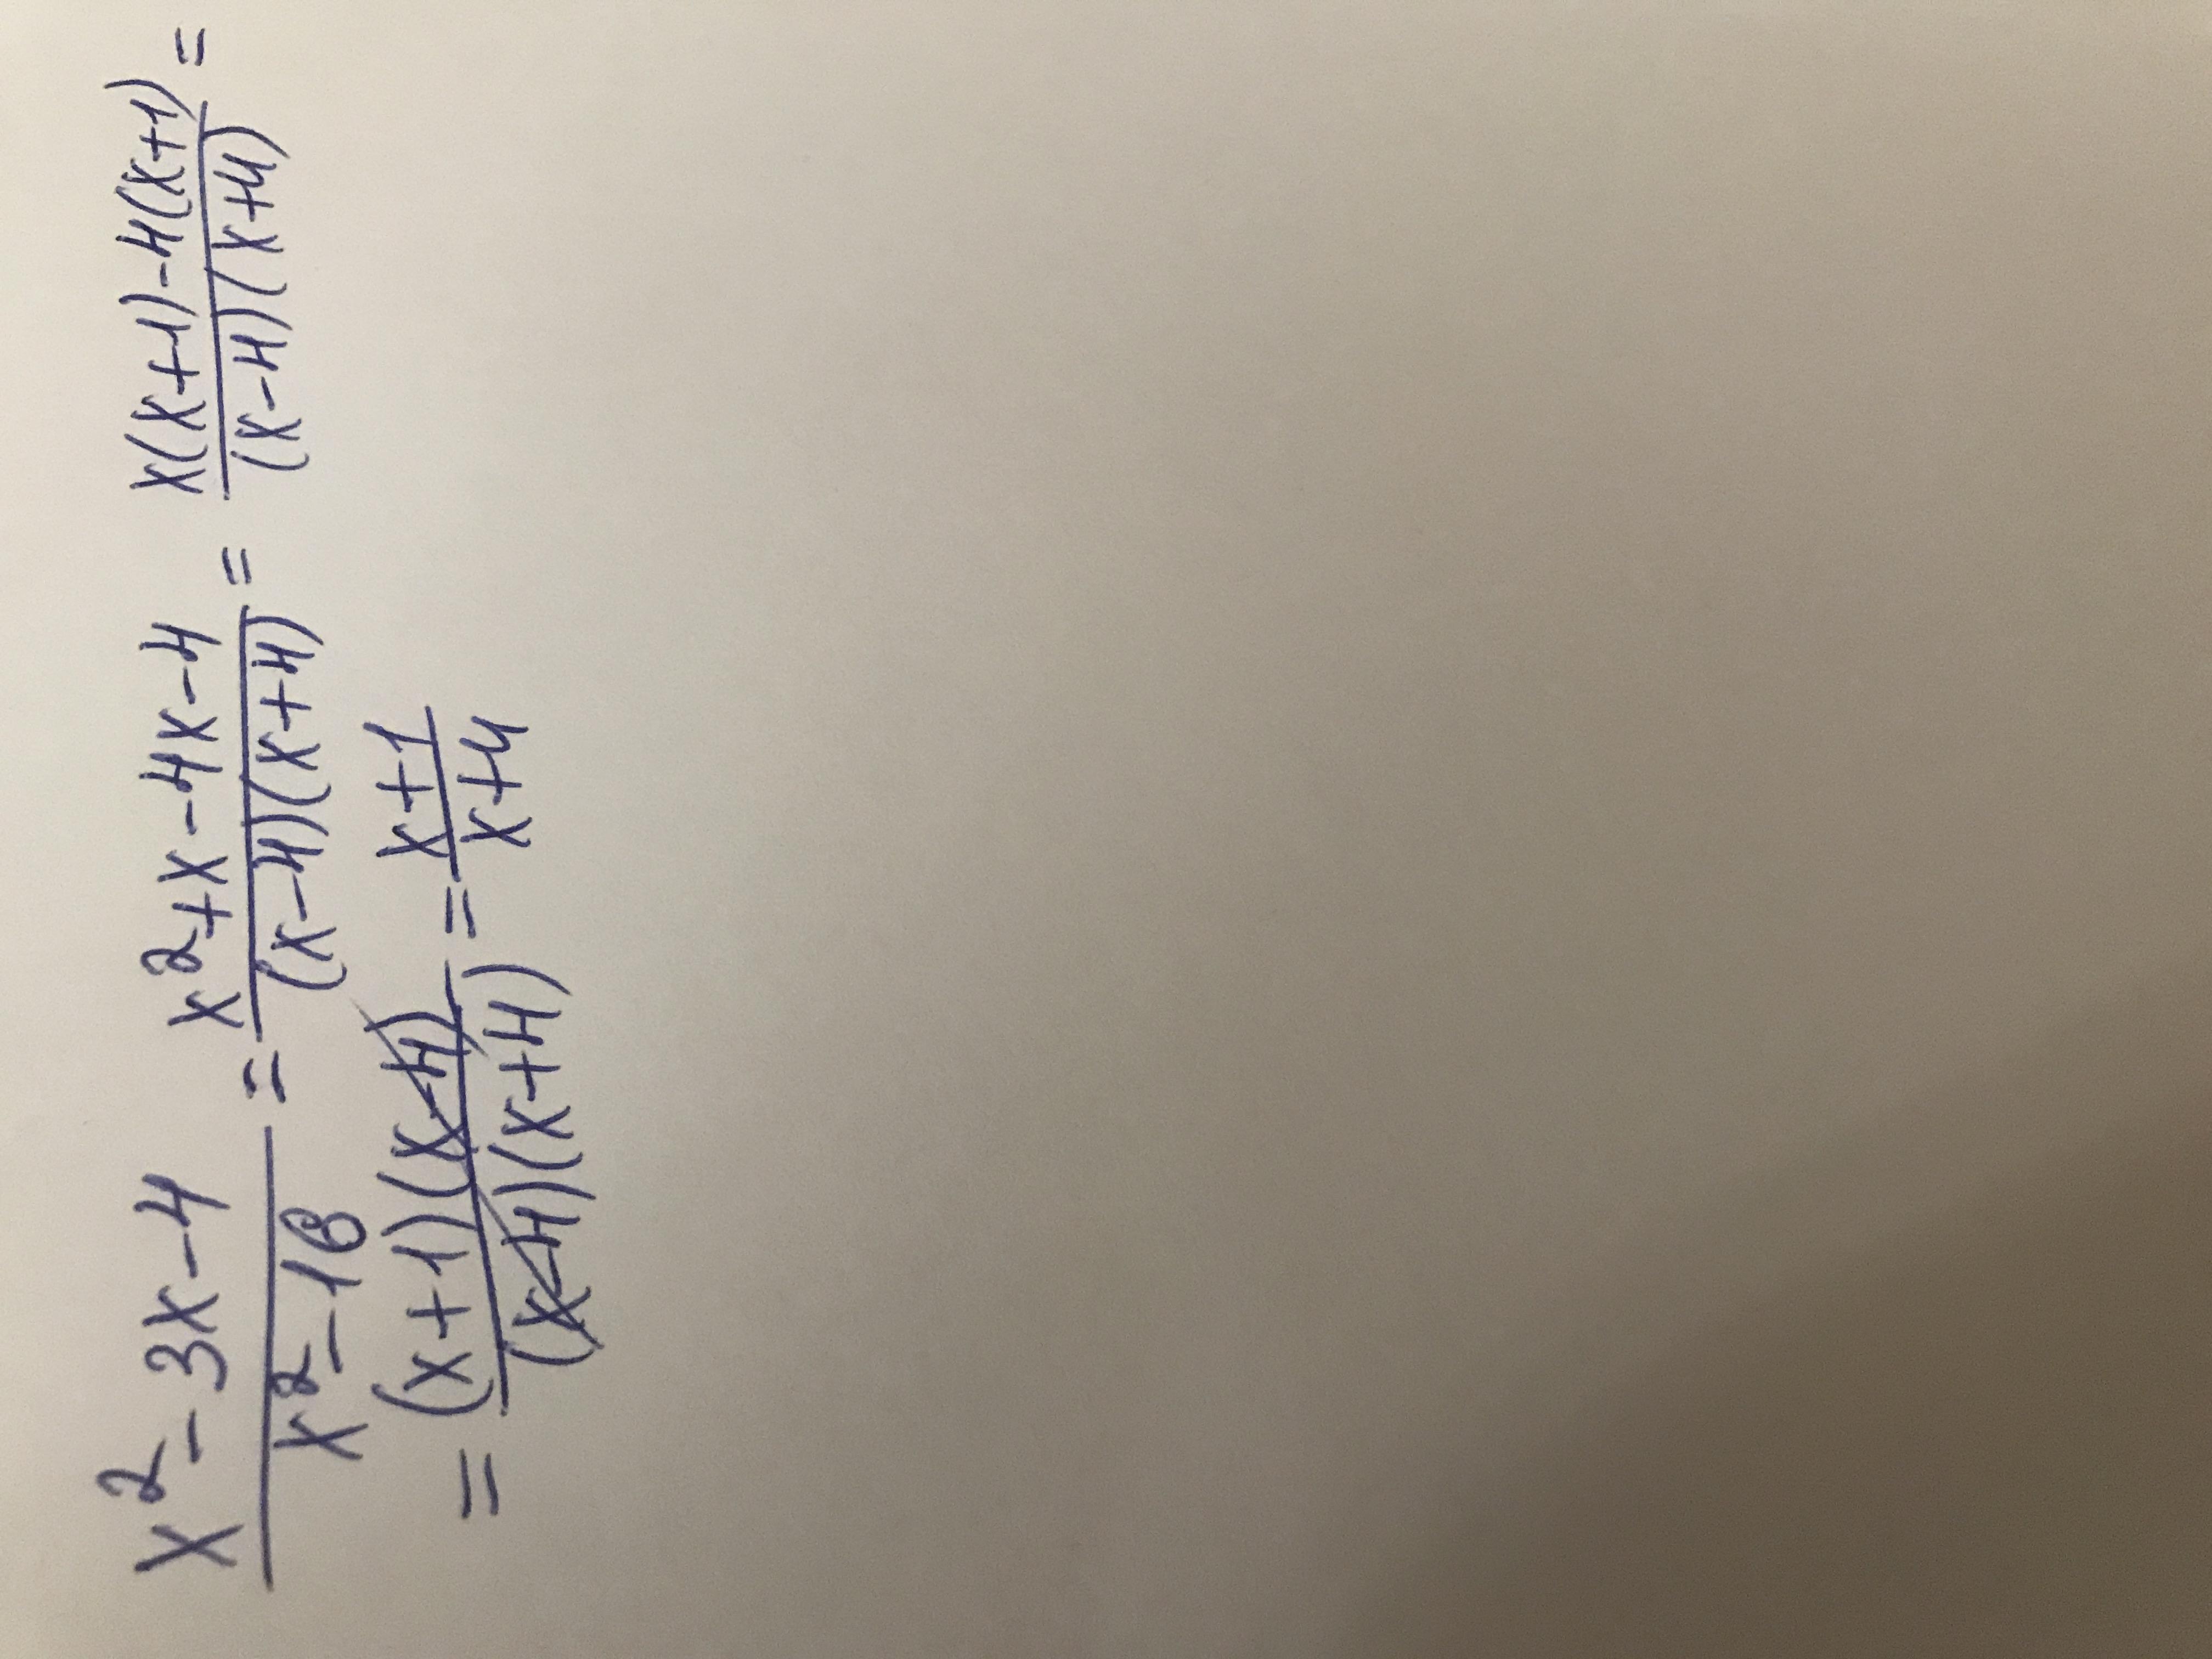 (x²-3x-4)/(x²-16) = (x²+x-4x-4)/((x-4)(x+4)) = (x(x+1)-4(x+1))/((x-4)(x+4)) =
= ((x+1)(x-4))/((x-4)(x+4)) = (x+1)/(x+4)